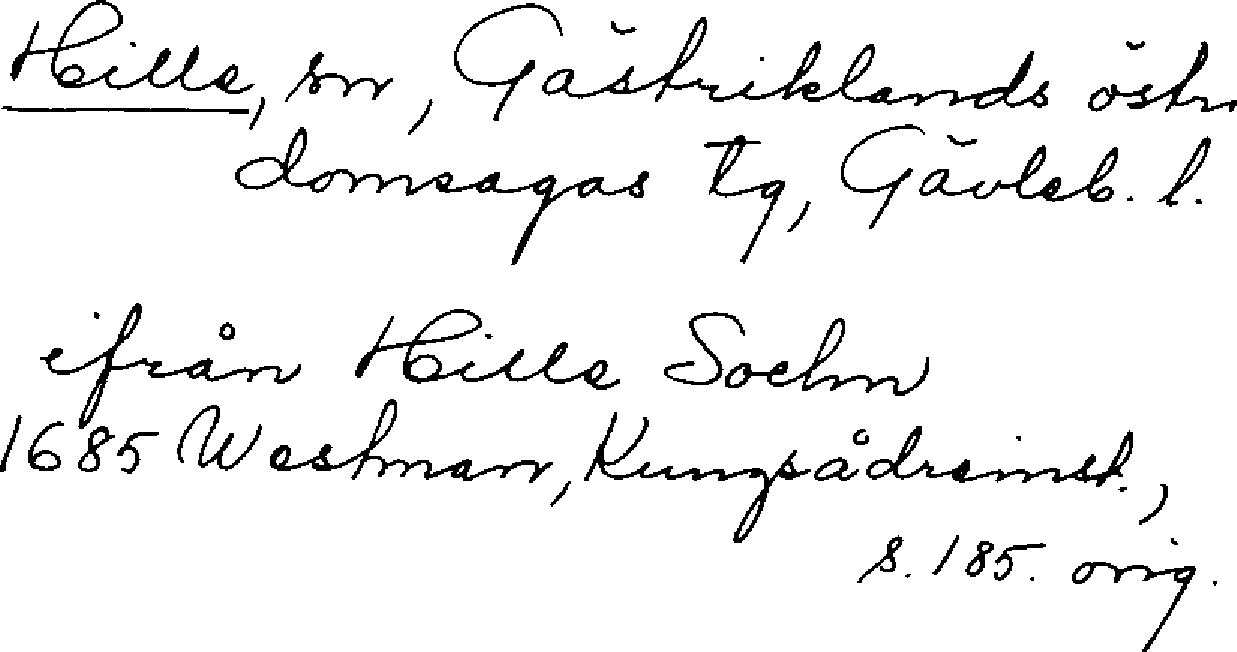 Hille, sn, Gästriklands östr
domsagas tg, Gävleb. l.
ifrån Hille Sochn
1685 Westman, Kungsådreinst.,
s. 185. orig.